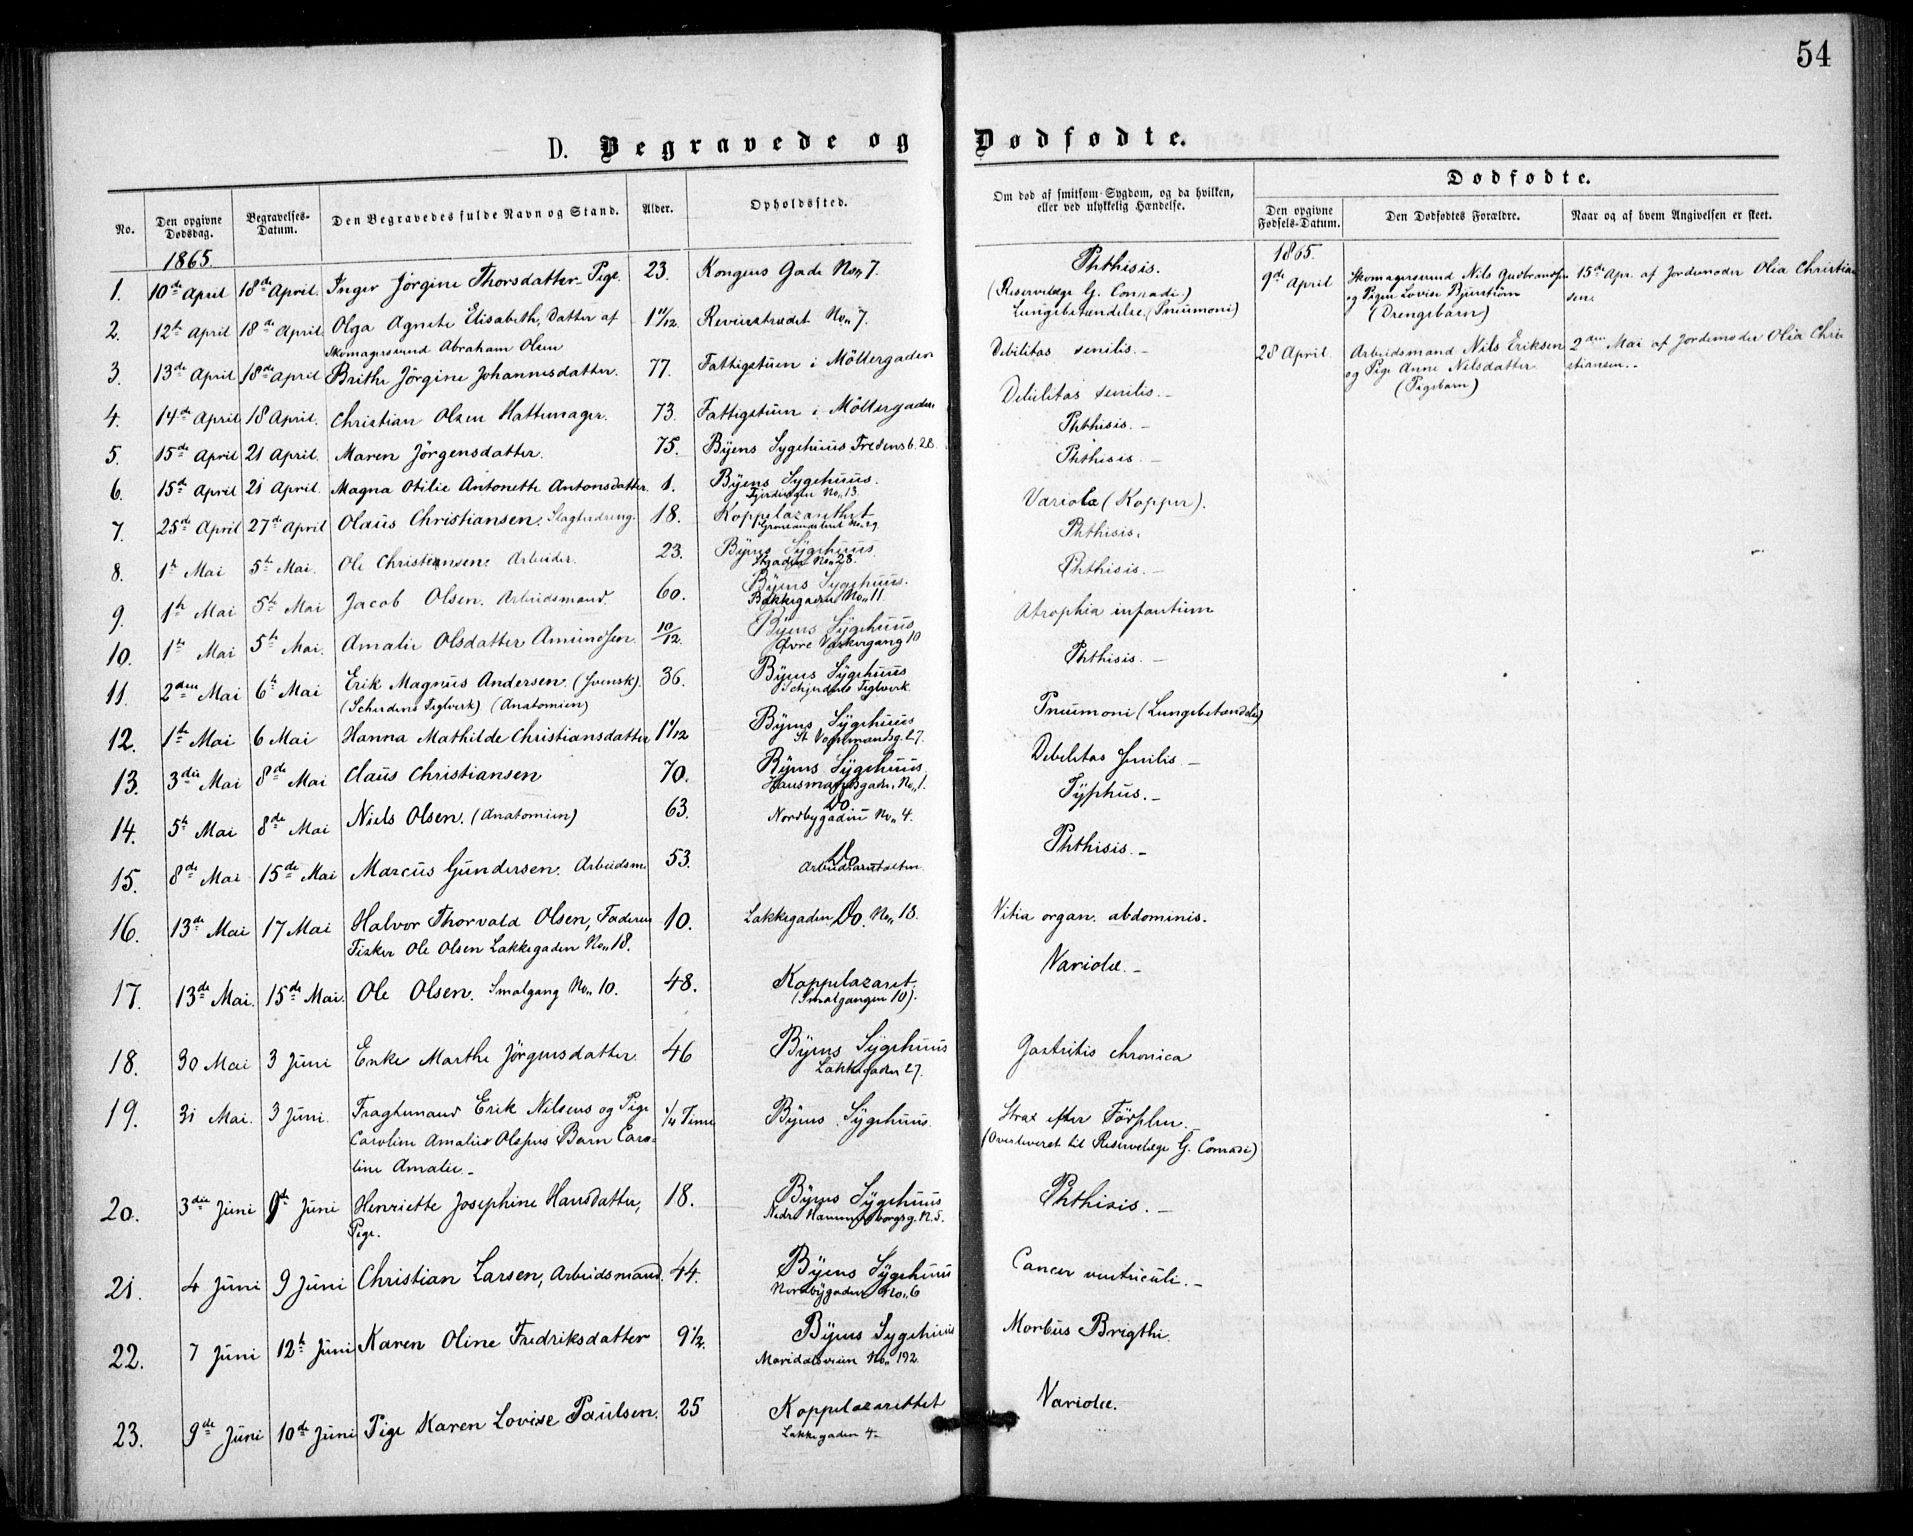 54
D. Begravede og Dødfødte.
No. Den opgivne Dødsdag. Begravelses-Datum. Den Begravedes fulde Navn og Stand. Alder. Opholdssted. Om død af smitsom Sygdom, og da hvilken, eller ved ulykkelig Hændelse. Dødfødte.
Den opgivne Fødsels-Datum. Den Dødfødtes Forældre. Naar og af hvem Angivelsen er skeet.
1865. 1865.
1. 10de April 18de April. Inger Jørgine Thorsdatter Pige. 23. Kongens Gade No. 7. Phthisis.
(Reservelæge G. Conradi.)
9de April Skomagersvend Nils Gudbrandsen 15de Apr. af Jordemoder Olia Christian
og Pigen Lovise Bjurstrøm sen.
(Drengebarn)
2. 12te April 18de April Olga Agnete Elisabeth, Datter af 1 11/12 Revierstrædet No. 7. Lungebetændelse (Pneumoni)
Skomagersvend Abraham Olsen
3. 13de April 18de April Brithe Jørgine Johannesdatter. 77. Fattigstuen i Möllergaden Debilitas senilis.
28 April. Arbeidsmand Nils Eriksen 2den Mai af Jordemoder Olia Chri
og Pige Anne Nilsdatter stiansen.
(Pigebarn)
4. 14de April 18 April. Christian Olsen Hattemager. 73. Fattigstuen i Möllergaden Debilitas senilis.
5. 15de April 21 April. Maren Jörgensdatter. 75. Byens Sygehuus Fredensb. 28. Phthisis.
6. 15de April 21 April. Magna Otilie Antonette Antonsdatter. 1. Byens Sygehuus. Phthisis.
Fjerdingen No. 13.
7. 25de April 27de April Olaus Christiansen. Slagterdreng. 18. Koppelazarethet Variolæ (Kopper).
8. 1te Mai 5te Mai. Ole Christensen. Arbeider. 23. Byens Sygehuus Phthisis.
No. 28.
9. 1te Mai 5te Mai Jacob Olsen. Arbeidsmand. 60. Byens Sygehuus. Phthisis.
Bakkegaden No. 11
10. 1te Mai 5te Mai. Amalie Olsdatter Amundsen. 10/12. Byens Sygehuus Atrophia infantium
Øvre Vaskergang 10
11. 2den Mai 6te Mai Erik Magnus Andersen. (Svensk). 36. Byens Sygehuus Phthisis.
(Scherdens Teglverk) (Anatomien) Schjerdens Teglverk.
12. 1te Mai 6 Mai Hanna Mathilde Christiansdatter 1 11/12 Byens Sygehuus Pneumoni (Lungebetændelse)
27.
13. 3die Mai 8de Mai Claus Christiansen 70. Byens Sygehuus Debilitas senilis.
Hausmannsgaden No. 1.
14. 5te Mai 8de Mai Niels Olsen. (Anatomien) 63. Do Typhus.
Nordbygaden No. 4.
15. 8de Mai 15de Mai Marcus Gundersen. Arbeidsm. 53. Do Phthisis.
Arbeidsanstalten.
16. 13de Mai 17 Mai Halvor Thorvald Olsen, Faderen 10. Lakkegaden Do. No. 18. Vitia organ. abdominis.
Fisker Ole Olsen Lakkegaden No. 18.
17. 13de Mai. 15de Mai. Ole Olsen. Smalgang No. 10. 48. Koppelazaret Variolæ.
(Smalgangen 10).
18. 30 Mai 3 Juni Enke Marthe Jörgensdatter. 46 Byens Sygehuus Gastritis chronica
Lakkegaden 27.
19. 31 Mai. 3 Juni. Fragtemand Erik Nilsens og Pige 1/4 Time Byens Sygehuus. Strax efter Födslen.
Caroline Amalie Olsens Barn Caro- (Overleveret til Reservelæge G. Conradi)
line Amalie.
20. 3die Juni 9de Juni Henriette Josephine Hansdatter, 18. Byens Sygehuus Phthisis.
Pige. Nedre Hammersborgsg. N. 5.
21. 4 Juni 9 Juni Christian Larsen, Arbeidsmand. 44. Byens Sygehuus Cancer ventriculi.
Nordbygaden No. 6
22. 7 Juni 12te Juni Karen Oline Fredriksdatter 9 1/2. Byens Sygehuus Morbus Brigthi.
Maridalsveien No. 192.
23. 9de Juni 10de Juni Pige Karen Lovise Paulsen. 25 Koppelazarettet Variolæ.
Lakkegaden 4.